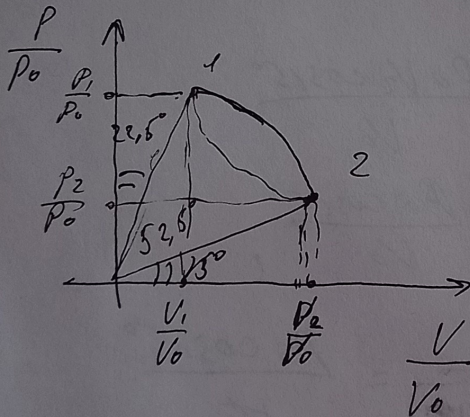 P
P₀
P₁
P₀
1
22,5°
P₂
P₀
2
52,5
15°
V₁
V₀
V
V₀